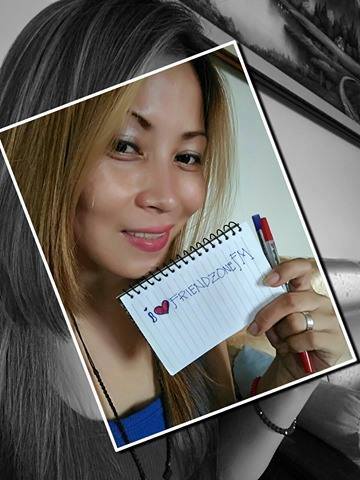 i ❤ FRIENDZONE FM